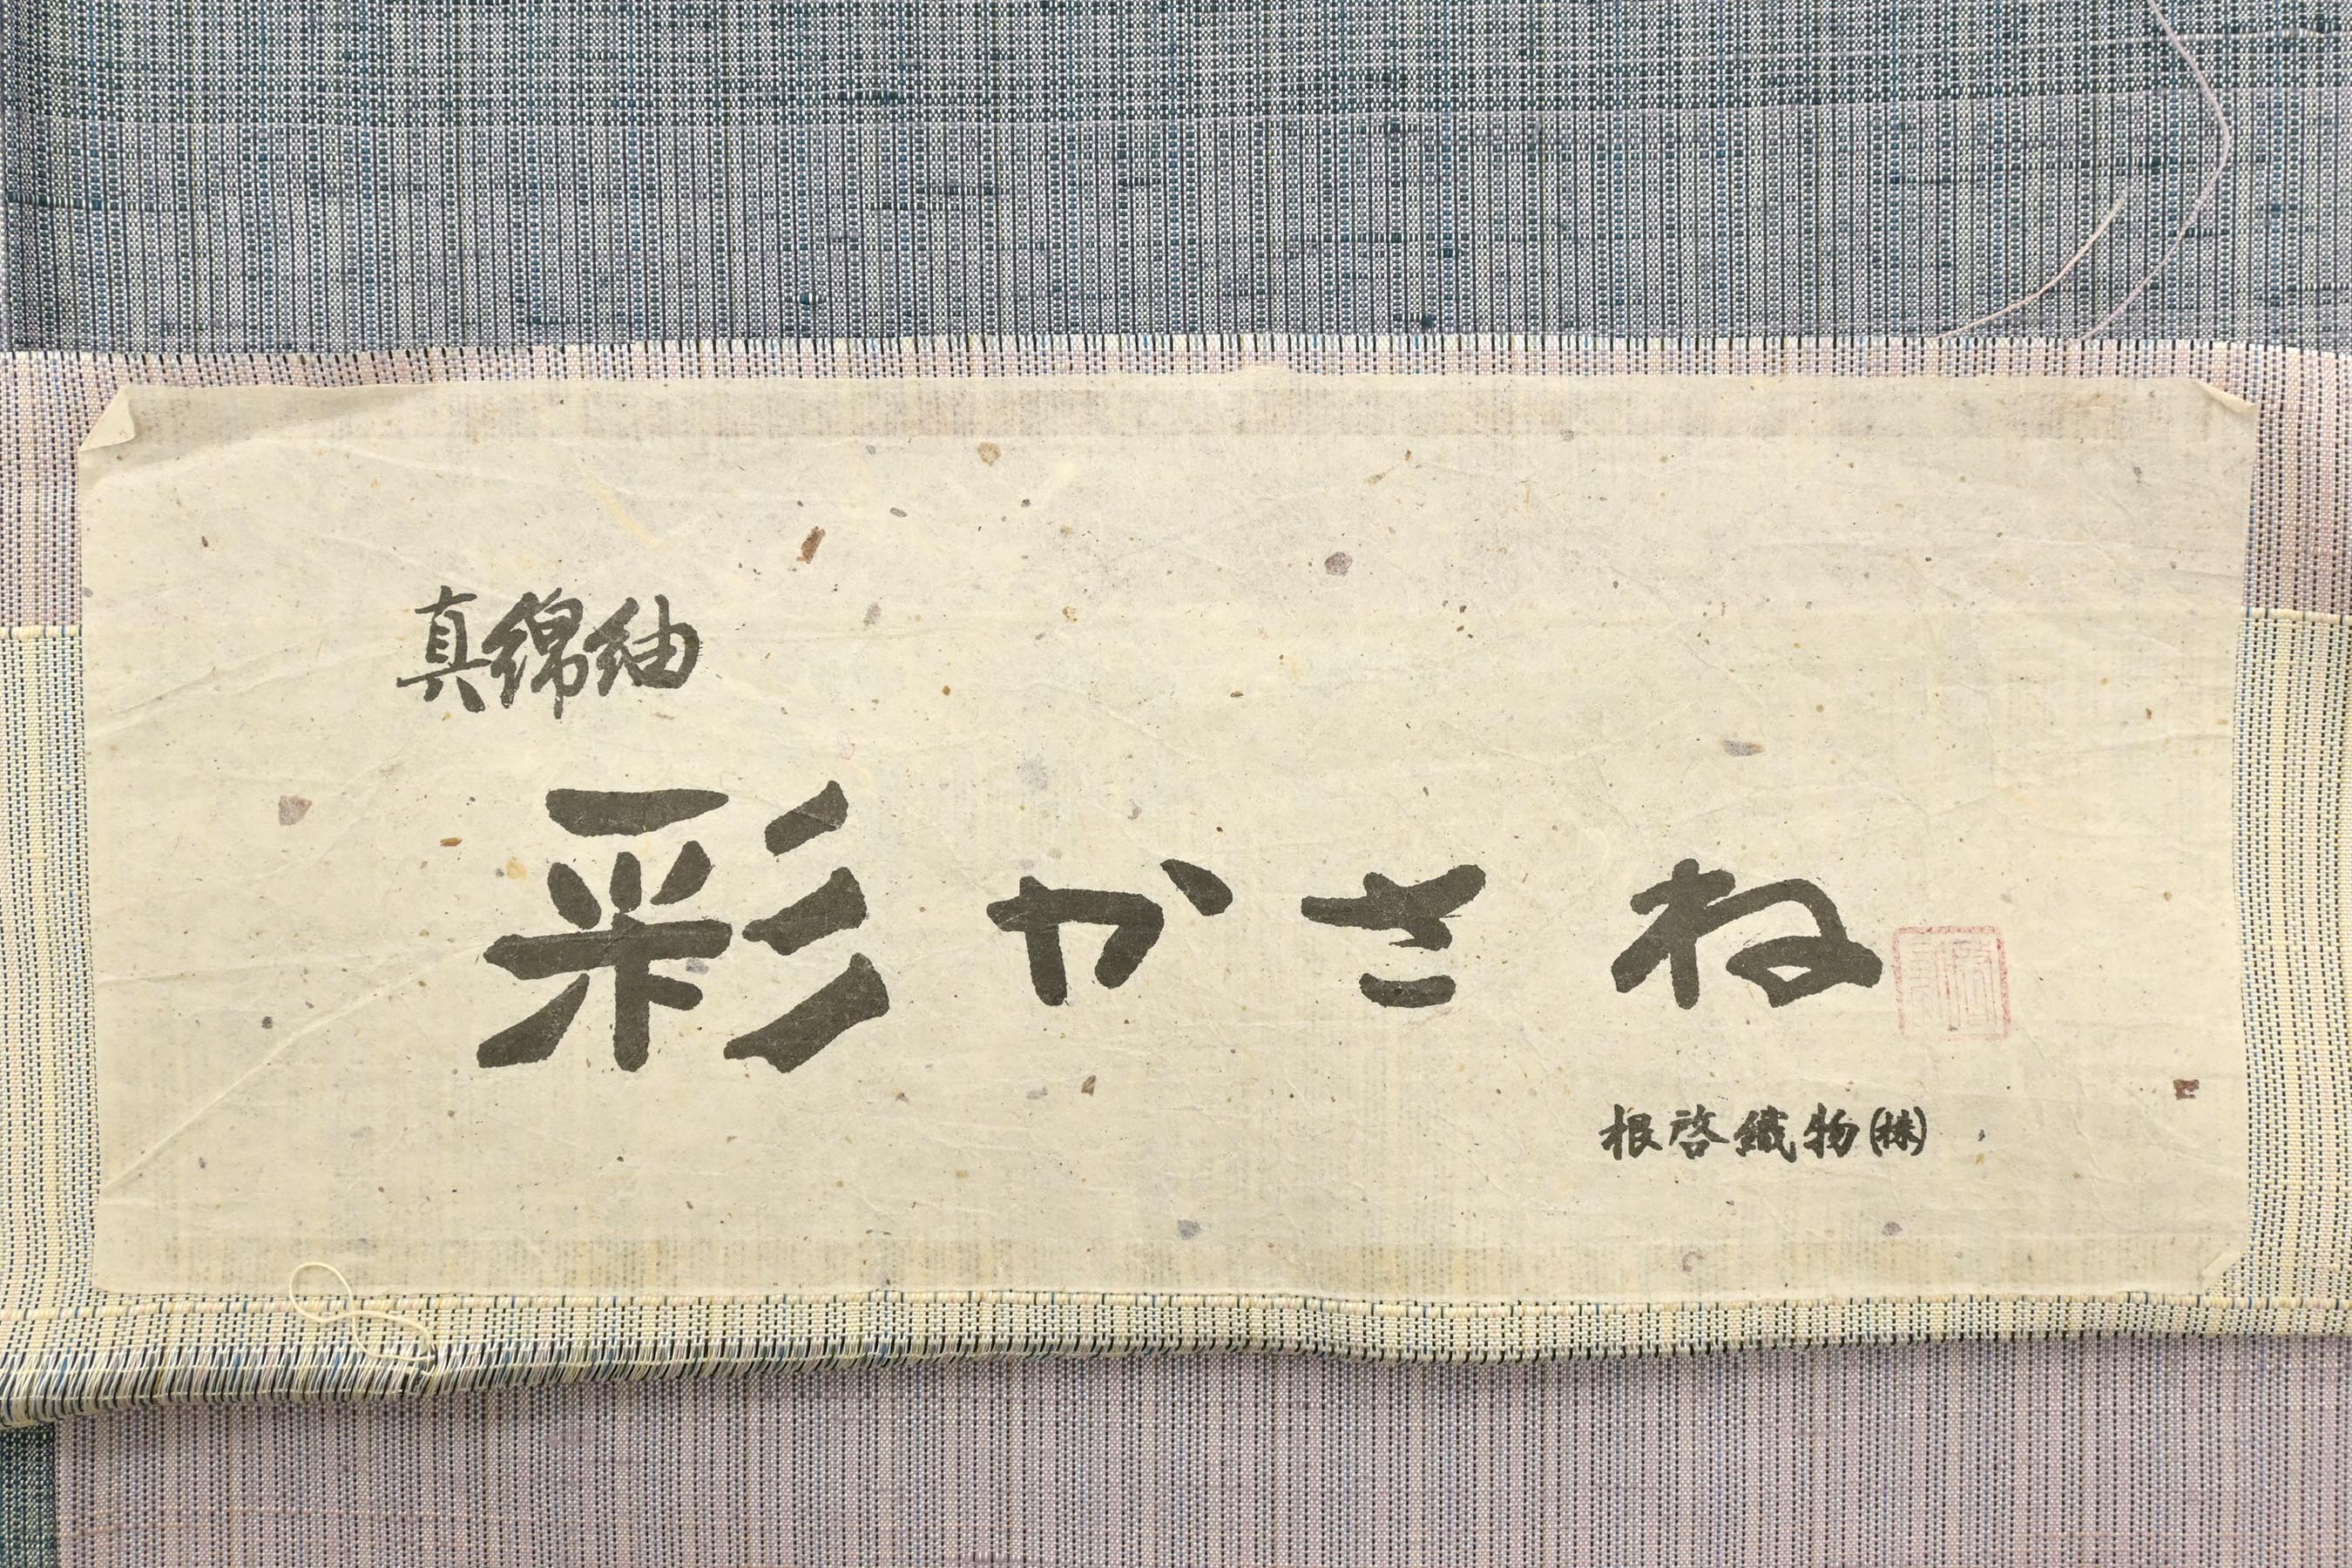 真綿紬
彩かさね
根啓織物㈱